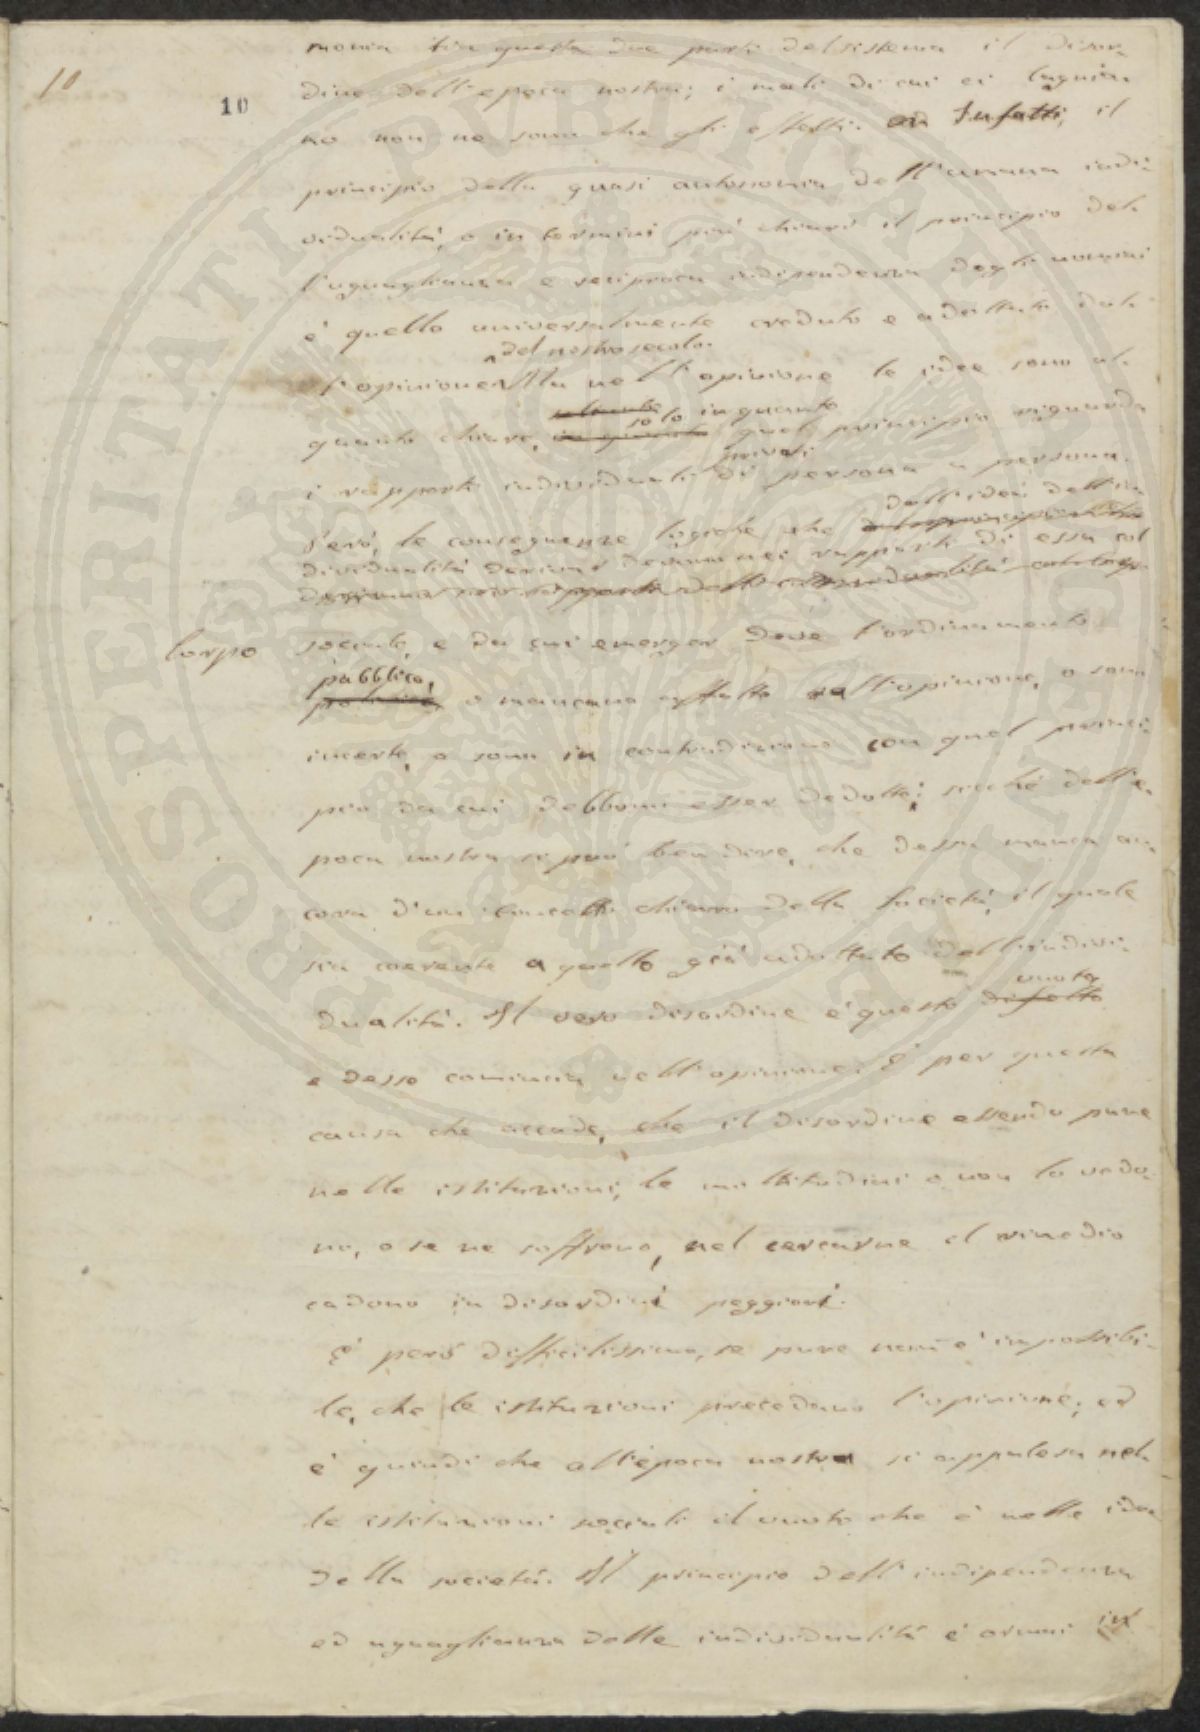 10
10
monia tra queste due parti del sistema il disor-
dine dell'epoca nostra; i mali di cui ci lagnia-
mo non ne sono che gli effetti. Infatti, il
principio della quasi autonomia dell'umana indi-
vidualità, o in termini più chiari il principio del-
l'uguaglianza e reciproca indipendenza degli uomini
è quello universalmente creduto e adottato dal-
del nostro secolo.
l'opinione Ma nell'opinione le idee sono al-
soltanto in quanto
solo
quanto chiare, in quanto quel principio riguarda
privati
i rapporti individuali di persona a persona.
dall'idea dell'in
Però, le conseguenze logiche che
dividualità derivar devono nei rapporti di essa col
Corpo
sociale, e da cui emerger deve l'ordinamento
pubblico,
politico o mancano affatto nell'opinione, o sono
incerte, o sono in contradizione con quel princi-
pio da cui debbono esser dedotte; sicché dell'e-
poca nostra si può ben dire, che dessa manca an-
cora d'un concetto chiaro della Società, il quale
sia coerente a quello già adottato dell'indivi-
vuoto
dualità. Il vero disordine è questo difetto
e desso comincia nell'opinione. È per questa
causa che accade, che il disordine essendo pure
nelle istituzioni, le moltitudini o non lo vedo-
no, o se ne soffrono, nel cercarne il rimedio
cadono in disordini peggiori.
È però difficilissimo, se pure non è impossibi-
le, che le istituzioni precedano l'opinione; ed
è quindi che all'epoca nostra si appalesa nel-
le istituzioni sociali il vuoto che è nelle idee
della società. Il principio dell'indipendenza
ed uguaglianza delle individualità è oramai in
PROSPERITATI PUBLICAE AUGENDAE